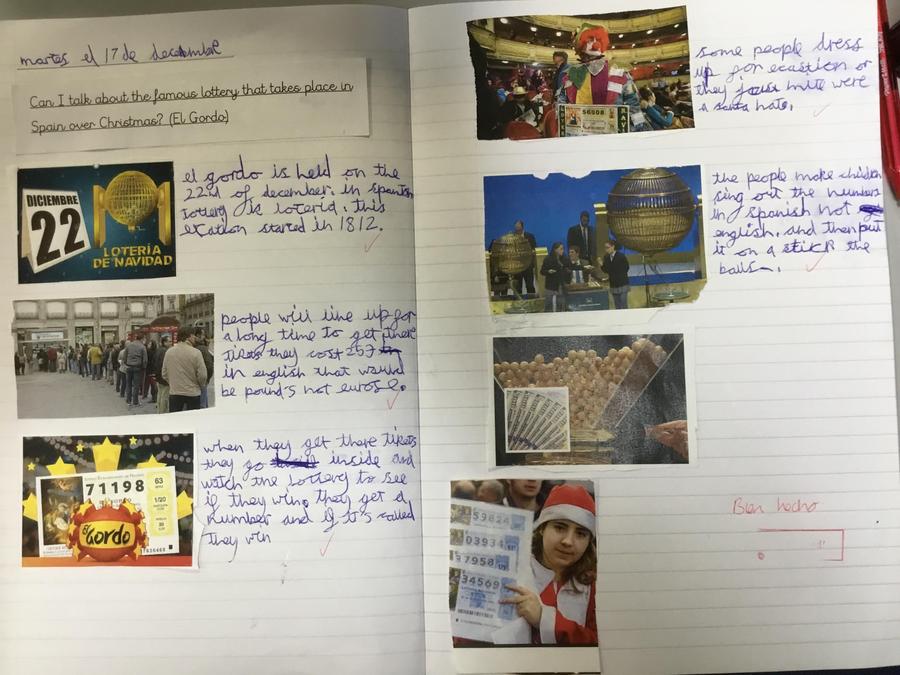 martes el 17 de december
Can I talk about the famous lottery that takes place in
Spain over Christmas? (El Gordo)
DICIEMBRE
22
LOTERÍA
DE NAVIDAD
el gordo is held on the
22nd of december. in spanish
lottery is loterid, this
exation started in 1812.
people will line up for
a long time to get
tikets they cost
in english that would
be pound's not euros €.
71198
63
1/20
El
Gordo
when they get there tikets
they go inside and
watch the lottery to see
if they win, they get a
number and if it's called
they win
56008
some people dress
up for ecastion or
they mite were
a santa hate.
the people make children
sing out the numbers
in spanish not
english. and then put
it on a stick the
balls.
59824
03934
37958
34569
Bien hecho